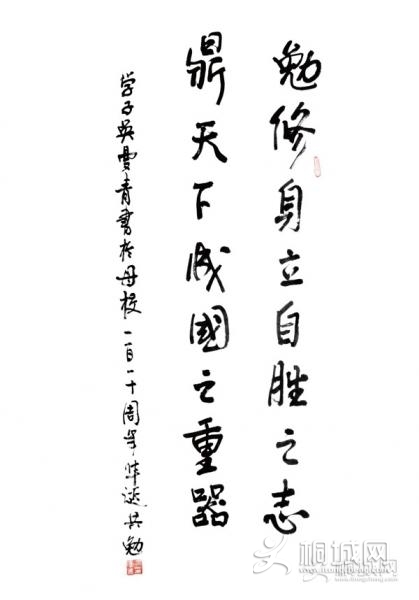 勉修身立自胜之志
鼎天下成國之重器
学子吴雪青書於母校一百一十周年华诞共勉
桐城网